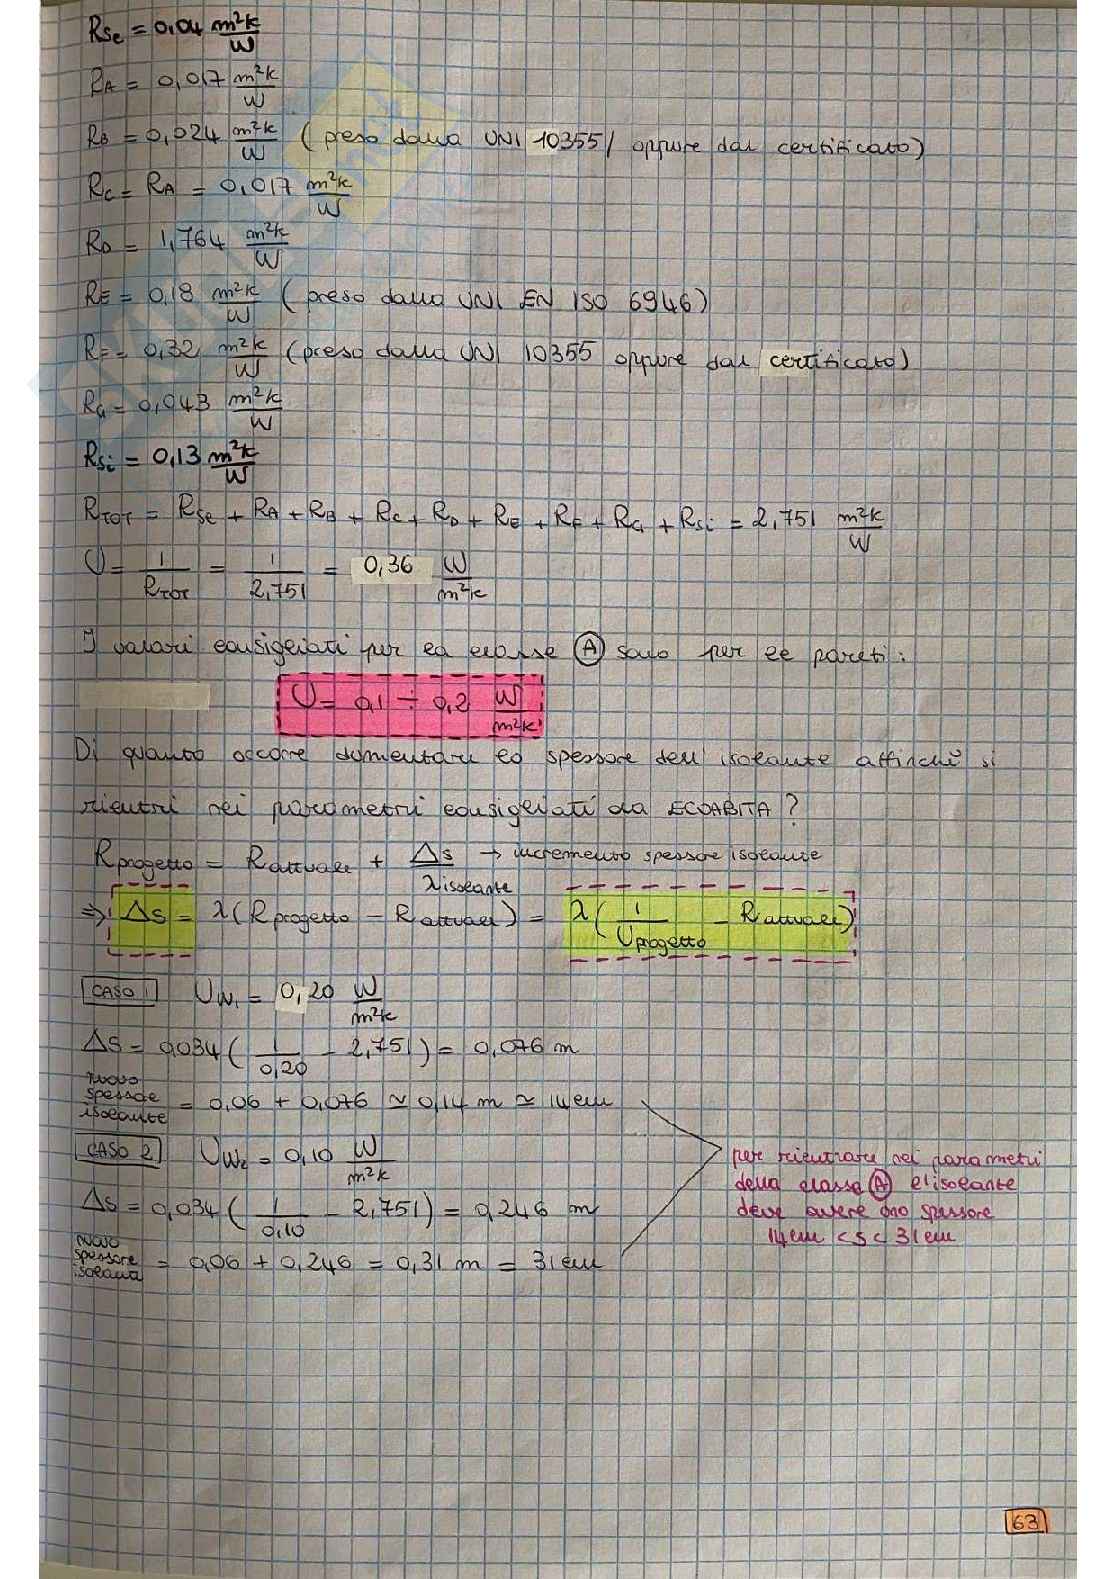 Rse = 0,04 m²k/W
RA = 0,017 m²k/W
RB = 0,024 m²k/W (preso dalla UNI 10355/ oppure dal certificato)
Rc = RA = 0,017 m²k/W
RD = 1,764 m²k/W
RE = 0,18 m²k/W (preso dalla UNI EN ISO 6946)
RF = 0,32 m²k/W (preso dalla UNI 10355 oppure dal certificato)
RG = 0,043 m²k/W
Rsi = 0,13 m²k/W
RTOT = Rse + RA + RB + Rc + RD + RE + RF + RG + Rsi = 2,751 m²k/W
U = 1/RTOT = 1/2,751 = 0,36 W/m²k
I valori consigliati per la classe A sono per le pareti:
U = 0,1 ÷ 0,2 W/m²k
Di quanto occorre aumentare lo spessore dell'isolante affinché si
rientri nei parametri consigliati da ECOABITA?
Rprogetto = Rattuale + Δs/λisolante → incremento spessore isolante
⇒ Δs = λ(Rprogetto - Rattuale) = λ(1/Uprogetto - Rattuale)
CASO 1 UW1 = 0,20 W/m²k
Δs = 0,034 (1/0,20 - 2,751) = 0,076 m
nuovo spessore isolante = 0,06 + 0,076 ≃ 0,14 m ≃ 14 cm
CASO 2 UW2 = 0,10 W/m²k
Δs = 0,034 (1/0,10 - 2,751) = 0,246 m
nuovo spessore isolante = 0,06 + 0,246 = 0,31 m = 31 cm
per rientrare nei parametri
della classe A l'isolante
deve avere uno spessore
14 cm < s < 31 cm
63